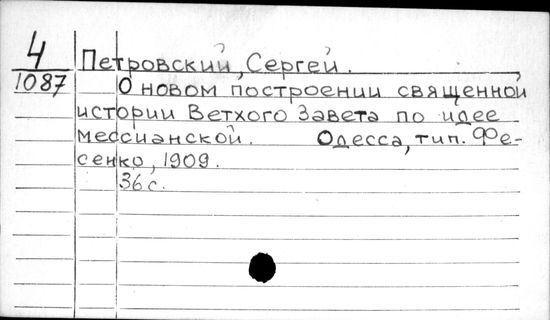 4
1087
Петровский, Сергей.
О новом построении священной
истории Ветхого Завета по идее
мессианской. Одесса, тип. Фе-
сенко, 1909.
36 с.